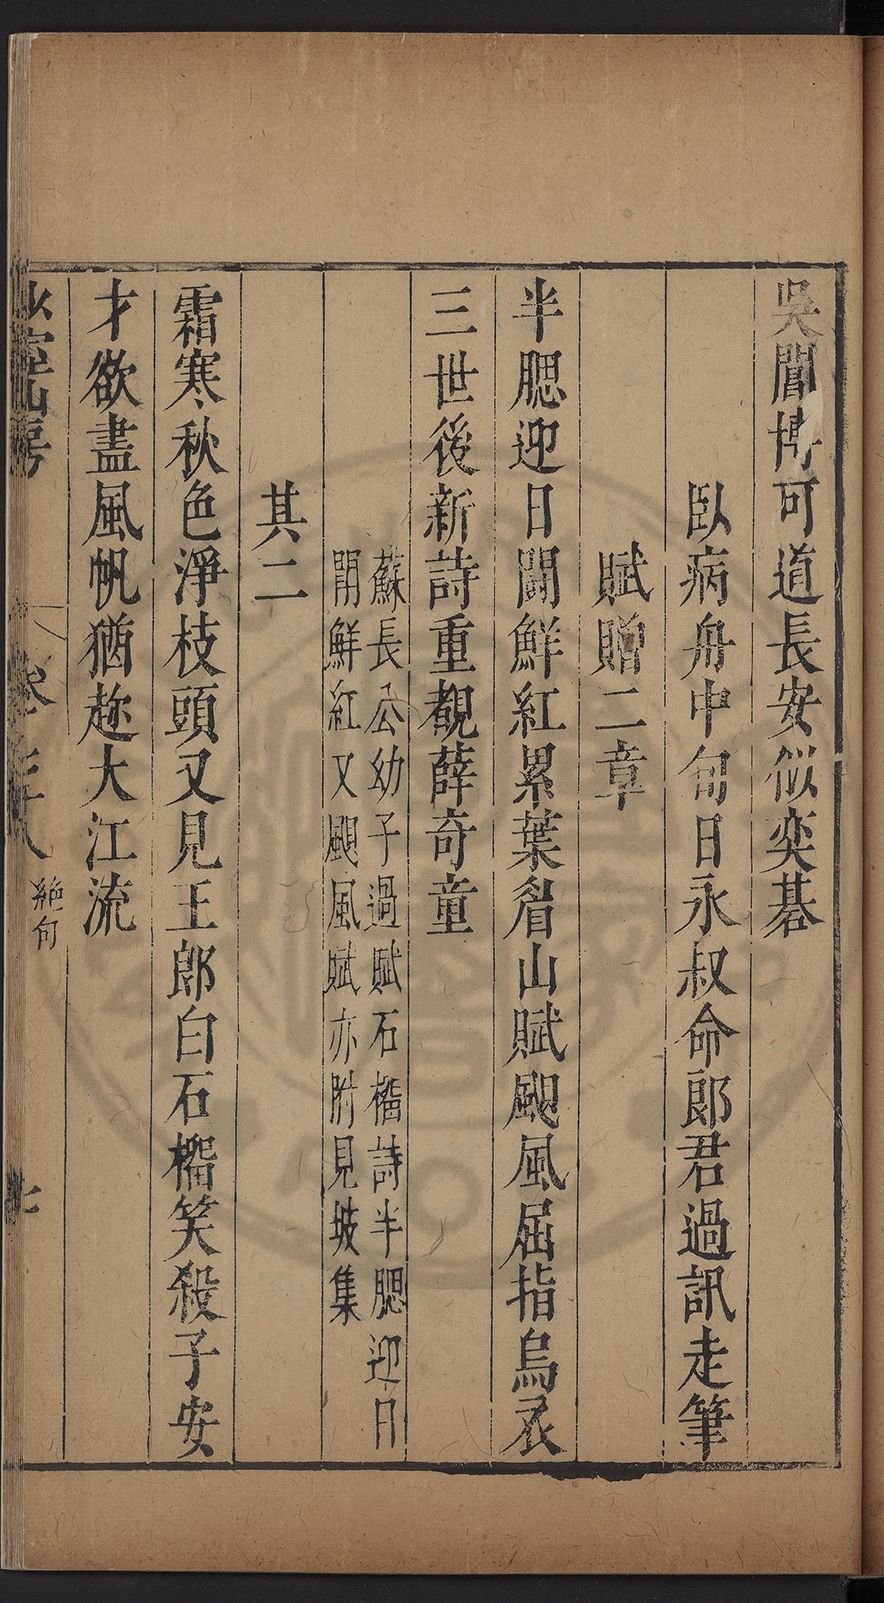 吳聞博可道長安似奕碁
臥病舟中旬日永叔命郎君過訊走筆
賦贈二章
半腮迎日鬭鮮紅累葉眉山賦颶風屈指烏衣
三世後新詩重覩薛奇童
蘇長公幼子過賦石榴詩半腮迎日
鬭鮮紅又颶風賦亦附見坡集
其二
霜寒秋色淨枝頭又見王郎白石榴笑殺子安
才欲盡風帆猶趂大江流
少室山房
卷之六十八 絶句
七